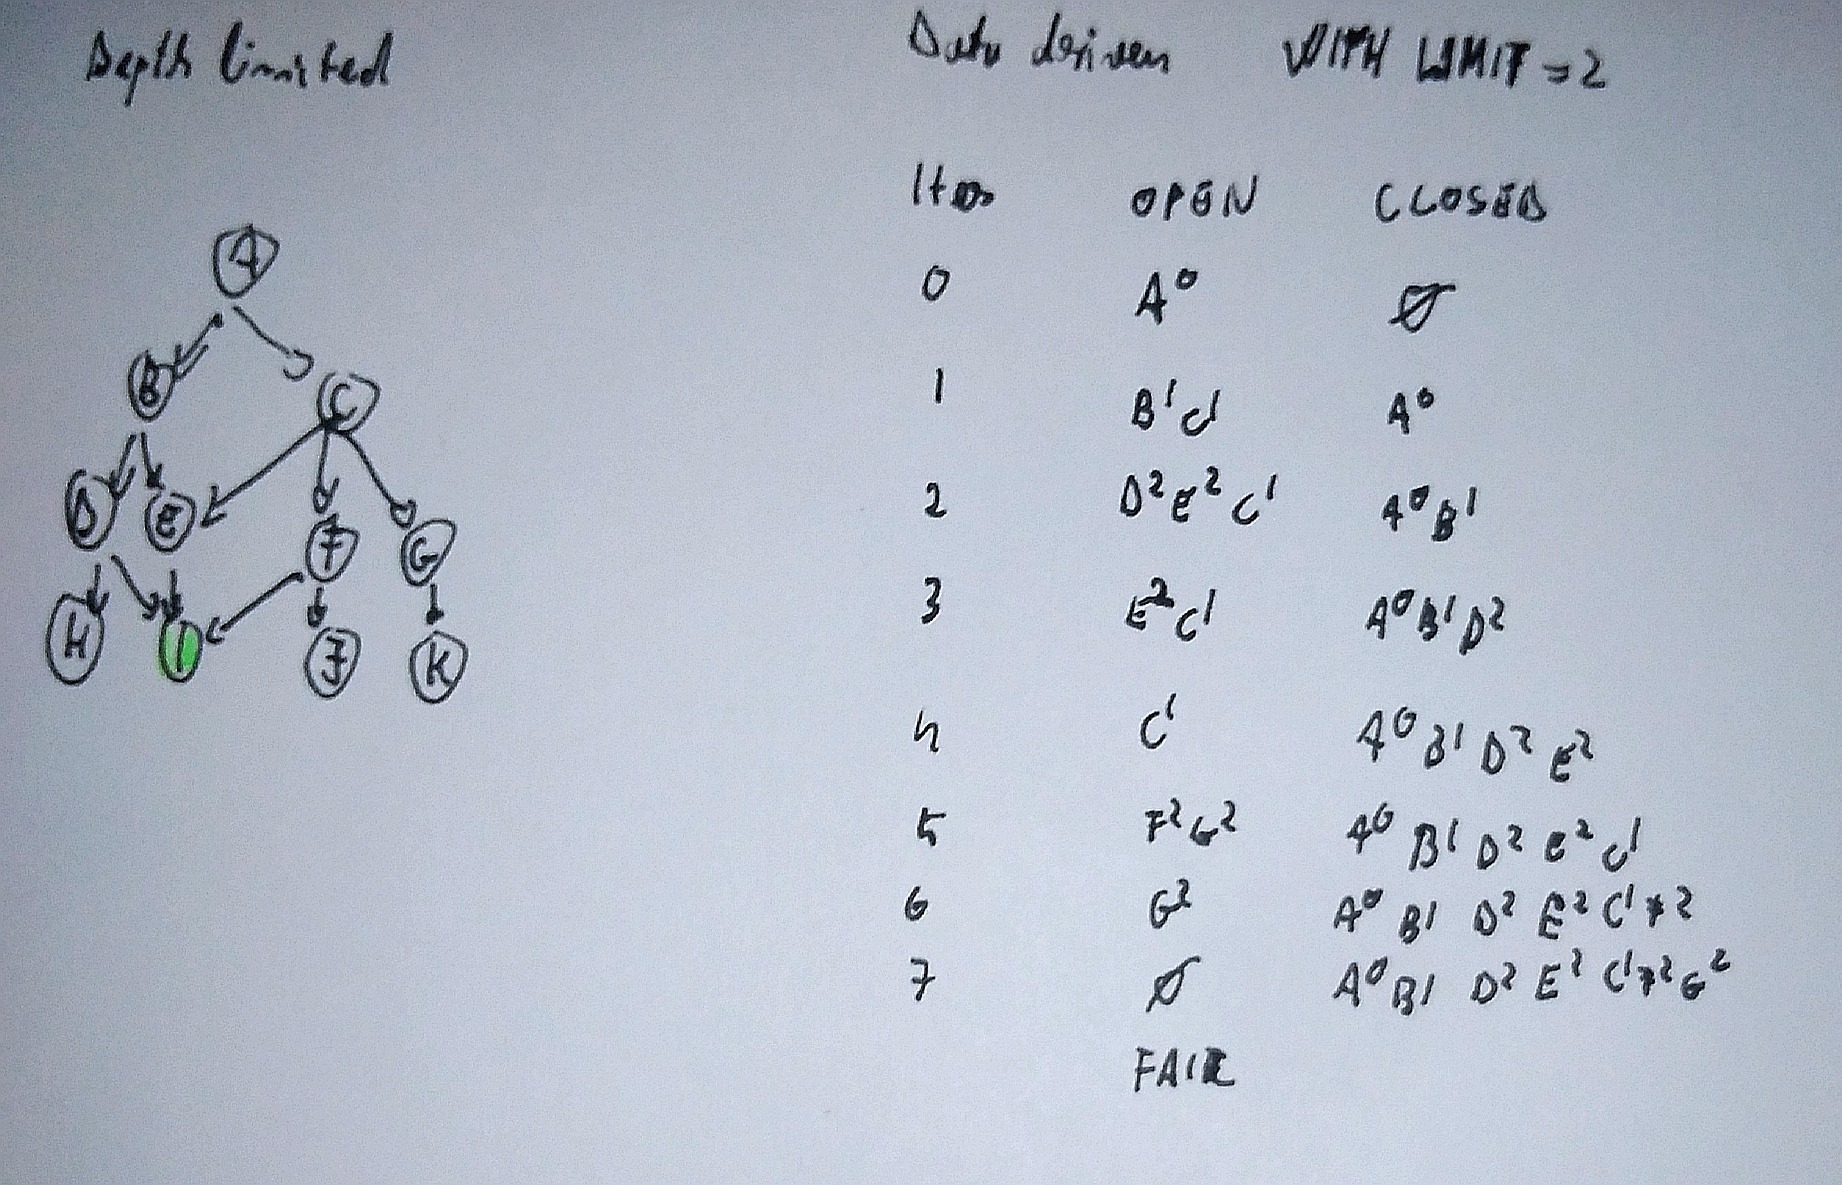 Depth limited
Data driven WITH LIMIT = 2
Iter OPEN CLOSED
0 A⁰ ∅
1 B¹C¹ A⁰
2 D²E²C¹ A⁰B¹
3 E²C¹ A⁰B¹D²
4 C¹ A⁰ B¹ D² E²
5 F²G² A⁰ B¹ D² E² C¹
6 G² A⁰ B¹ D² E² C¹ F²
7 ∅ A⁰ B¹ D² E² C¹ F² G²
FAIL
A
B C
D E F G
H I J K